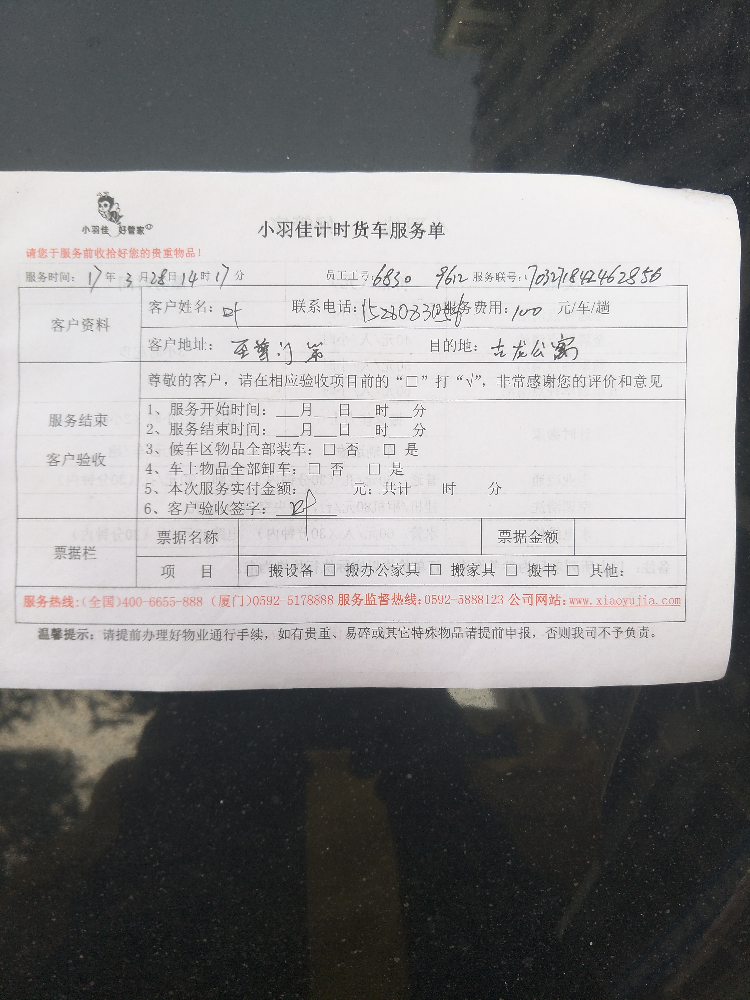 小羽佳 好管家
小羽佳计时货车服务单
请您于服务前收拾好您的贵重物品!
服务时间: 17年 3月28日14时17分 员工工号: 6830 9612 服务联号:
客户资料
客户姓名: 叶 联系电话: 服务费用: 100 元/车/趟
客户地址: 至尊门第 目的地: 古龙公寓
尊敬的客户，请在相应验收项目前的“□”打“√”，非常感谢您的评价和意见
服务结束
客户验收
1、服务开始时间: ___月___日___时___分
2、服务结束时间: ___月___日___时___分
3、候车区物品全部装车: □ 否 □ 是
4、车上物品全部卸车: □ 否 □ 是
5、本次服务实付金额: 元; 共计 时 分
6、客户验收签字: 叶
票据栏
票据名称 票据金额
项 目 □ 搬设备 □ 搬办公家具 □ 搬家具 □ 搬书 □ 其他:
服务热线:(全国)400-6655-888 (厦门)0592-5178888 服务监督热线:0592-5888123 公司网站:www.xiaoyujia.com
温馨提示: 请提前办理好物业通行手续，如有贵重、易碎或其它特殊物品请提前申报，否则我司不予负责。